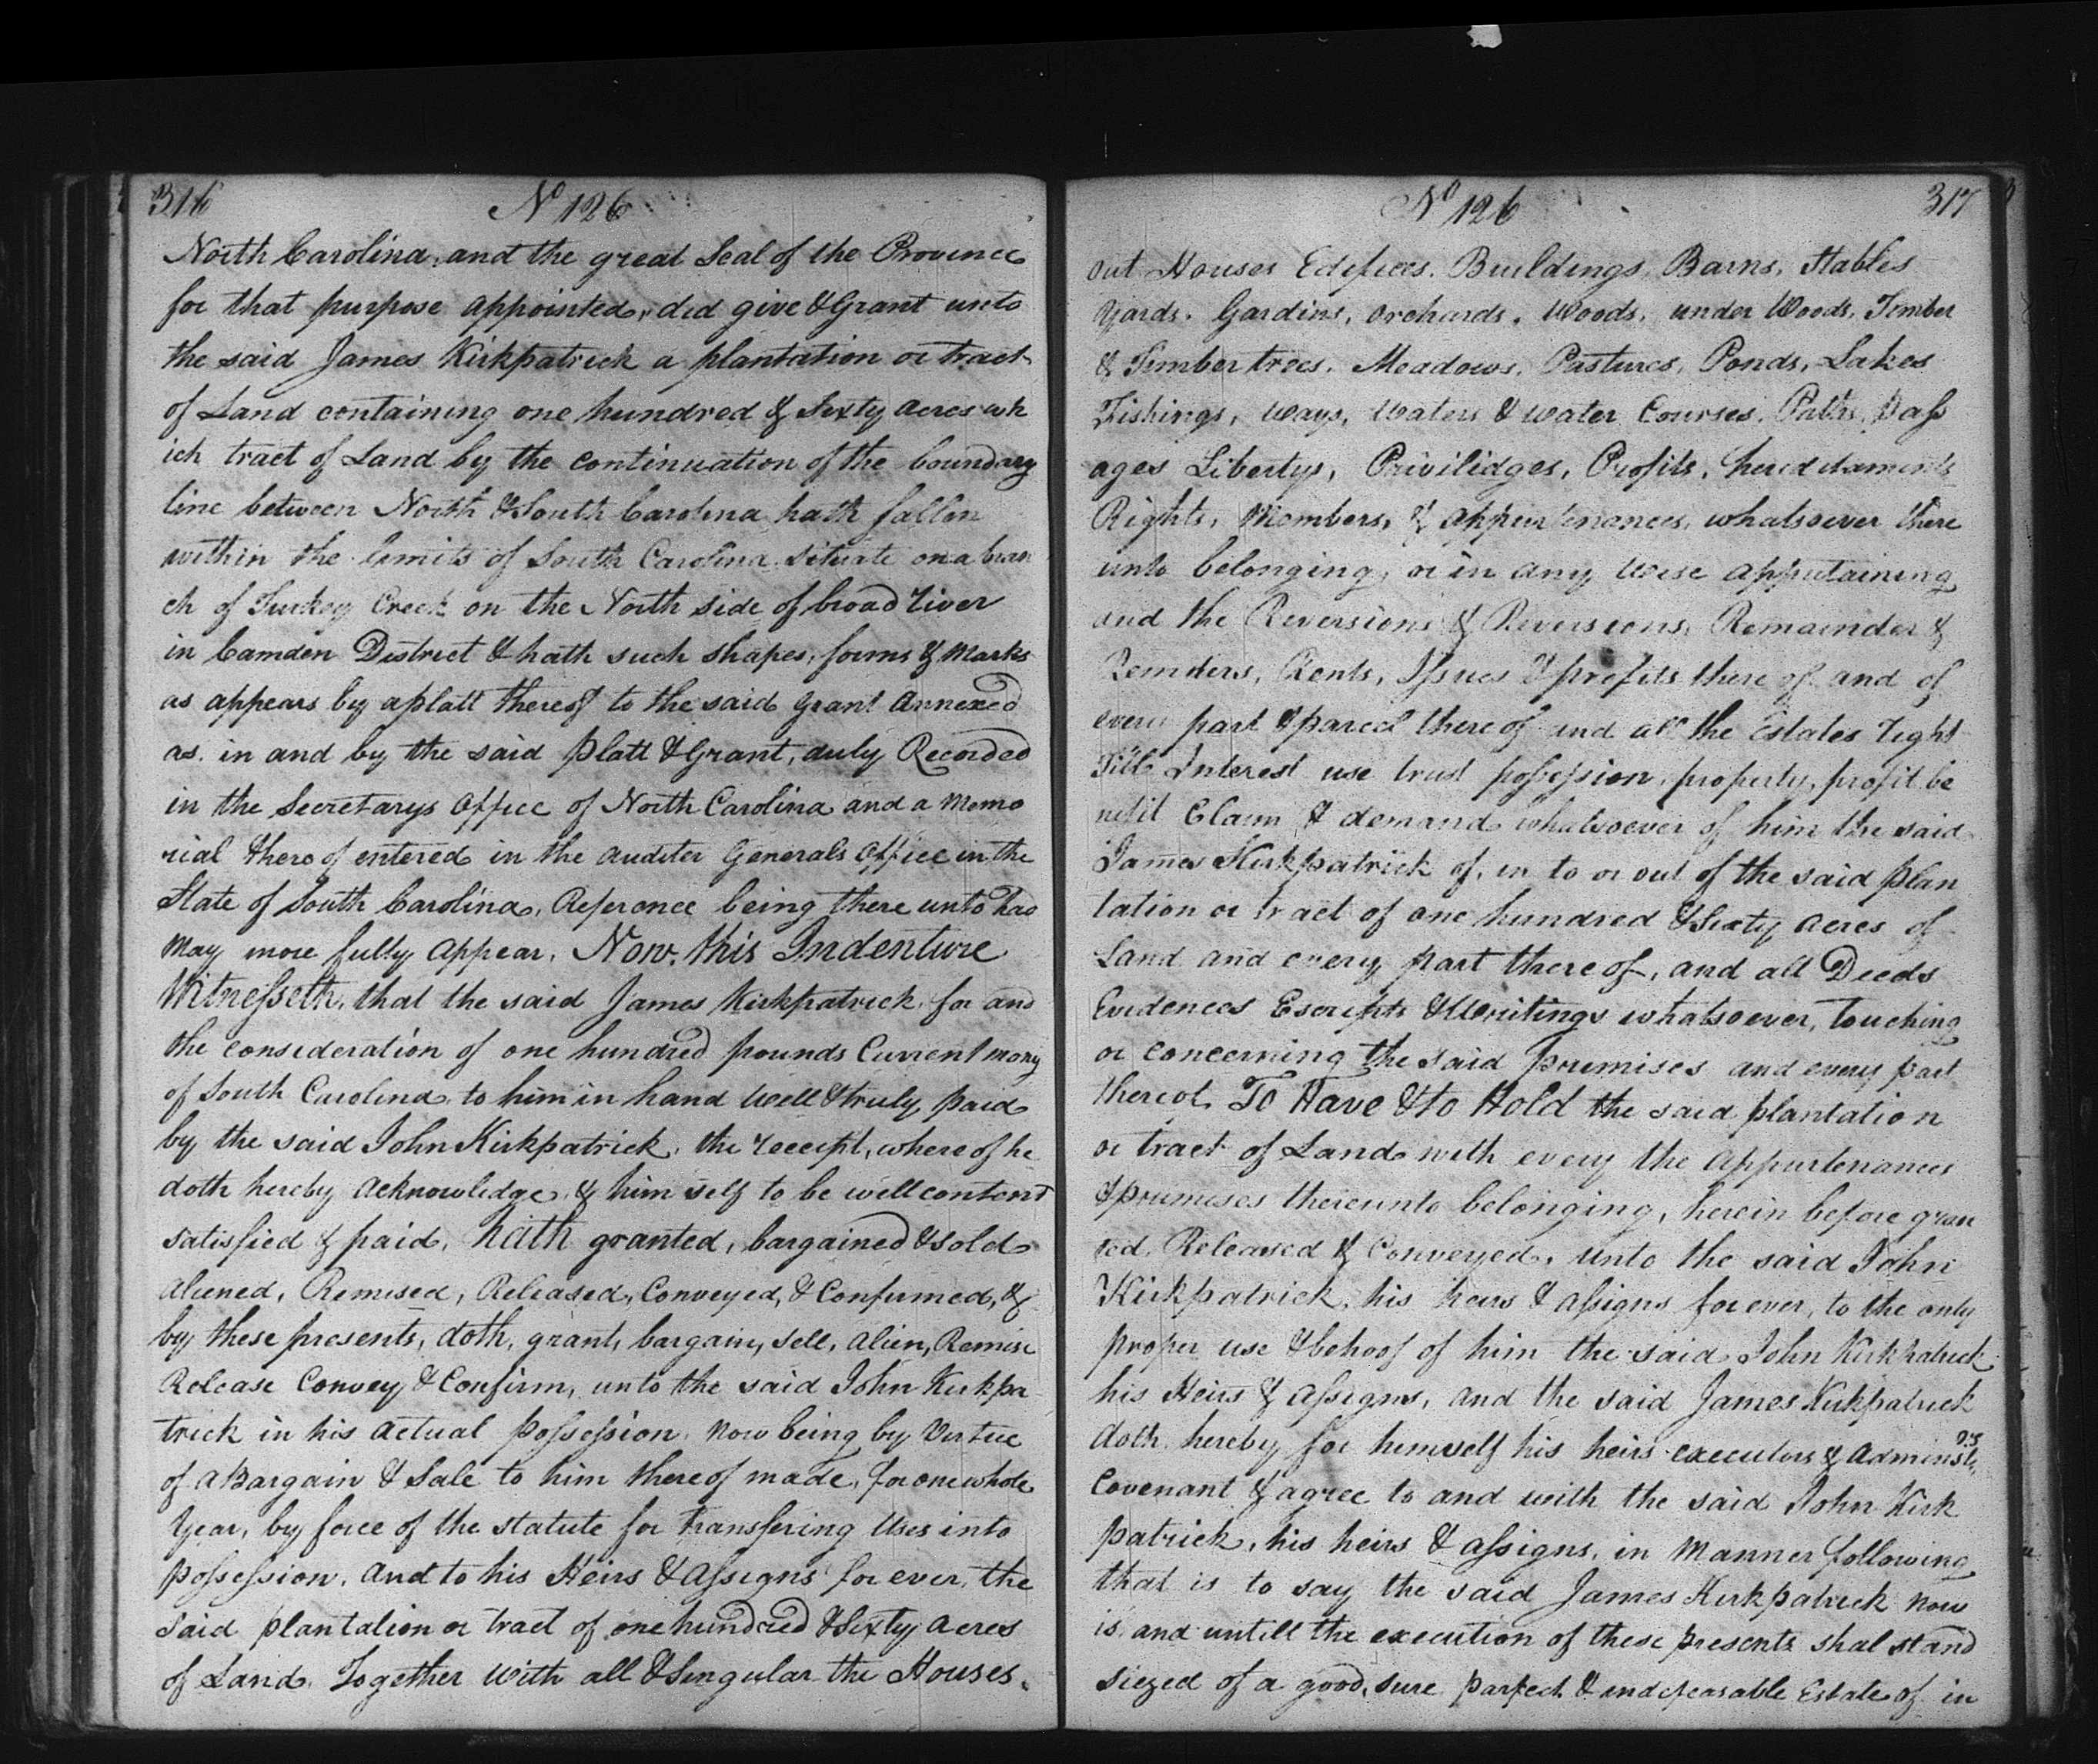 316 No 126
North Carolina, and the great Seal of the Province
for that purpose appointed, did give & Grant unto
the said James Kirkpatrick a plantation or tract
of Land containing one hundred & Sixty acres wh
ich tract of Land by the continuation of the boundary
line between North & South Carolina hath fallen
within the limits of South Carolina situate on a bran
ch of Turkey Creek on the North side of broad River
in Camden District & hath such shapes, forms & Marks
as appears by a platt thereof to the said grant Annexed
as in and by the said Platt & Grant, duly Recorded
in the Secretarys Office of North Carolina and a Memo
rial thereof entered in the auditer Generals Office in the
State of South Carolina, Reference being there unto had
May more fully appear. Now this Indenture
Witnesseth, that the said James Kirkpatrick for and
the consideration of one hundred pounds Current mony
of South Carolina to him in hand well & truly paid
by the said John Kirkpatrick, the receipt, where of he
doth hereby acknowledge & him self to be well content
satisfied & paid, hath granted, bargained & sold
aliened, Remised, Released, Conveyed, & Confirmed, &
by these presents, doth, grant, bargain, sell, alien, Remise
Release Convey & Confirm, unto the said John Kirkpa
trick in his actual possession now being by Vertue
of a Bargain & Sale to him there of made, for one whole
Year, by force of the statute for transfering Uses into
possession, and to his Heirs & Assigns for ever, the
said plantation or tract of one hundred & Sixty acres
of Land. Together with all & Singular the Houses,
No 126 317
out Houses Edifices. Buildings, Barns, Stables
Yards. Gardins, orchards, Woods, under Woods, Timber
& Timber trees. Meadows. Pastures, Ponds, Lakes
Fishings, Ways, Waters & water Courses. Paths, Pass
ages Libertys, Privilidges, Profits, hereditaments
Rights, Members, & appurtenances, whatsoever there
unto belonging, or in any wise appertaining
and the Reversions & Reversions, Remainder &
Remders, Rents, Issues & profits there of and of
every part & parcel there of and all the Estates right
Title Interest use trust possession, property, profit be
nefit Claim & demand whatsoever of him the said
James Kirkpatrick of, in to or out of the said plan
tation or tract of one hundred & Sixty acres of
Land and every part there of, and all Deeds
Evidences Escripts & Writings whatsoever, touching
or concerning the said premises and every part
thereof. To Have & to Hold the said plantation
or tract of Land with every the appurtenances
& premises thereunto belonging, herein before gran
ted, Released & Conveyed, unto the said John
Kirkpatrick, his heirs & assigns for ever, to the only
proper use & behoof of him the said John Kirkpatrick
his Heirs & assigns, and the said James Kirkpatrick
doth hereby for himself his heirs executors & Adminstrs
Covenant & agree to and with the said John Kirk
patrick, his heirs & assigns, in Manner following
that is to say the said James Kirkpatrick now
is and untill the execution of these presents shal stand
siezed of a good, sure parfect & indefeasable Estate of in